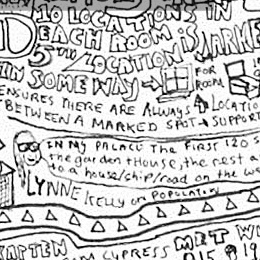 10 LOCATIONS IN
EACH ROOM IS MARKE
5TH LOCATION
IN SOME WAY → FOR
ROOM
ENSURES THERE ARE ALWAYS 4 LOCATIO
BETWEEN A MARKED SPOT → SUPPORT
IN MY PALACE THE FIRST 120 S
the garden + House, the rest a
to a house/ship/road on the we
LYNNE KELLY ON POPULATIN
MET WI
CYPRESS